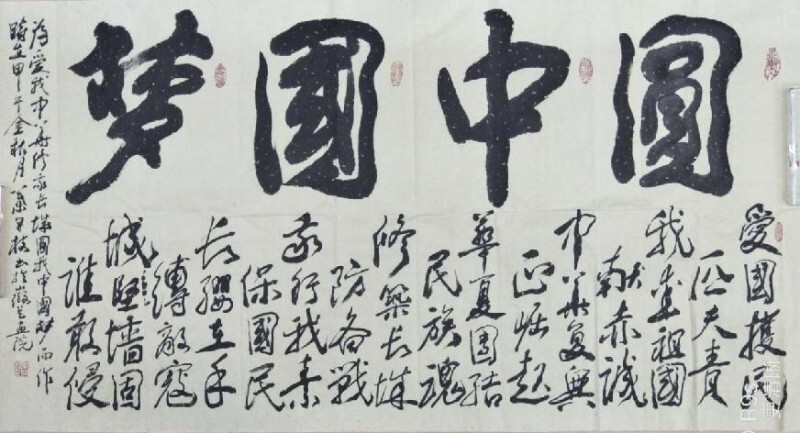 圓中國梦
愛國護民
匹夫責
我愛祖國
献赤誠
中華复興
正崛起
華夏團結
民族魂
修築長城
防备戰
我行我素
保國民
長纓在手
縛敵寇
城堅墙固
誰敢侵
為愛我中華修我長城圓我中國梦而作
時在甲午金秋月